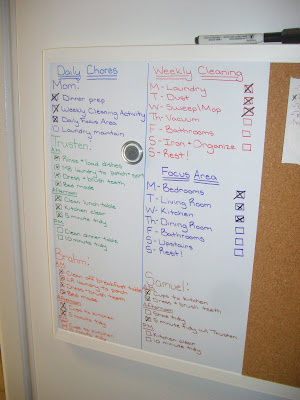 Daily Chores
Mom:
Dinner prep
Weekly Cleaning Activity
Daily Focus Area
Laundry maintain
Trusten:
AM
Rinse + load dishes
laundry to
Dress + brush teeth
Bed made
Afternoon
Clean lunch table
Kitchen clear
5 minute tidy
PM
Clean dinner table
10 minute tidy
Brahm:
AM
Clean off breakfast table
laundry to
Dress + brush teeth
Bed made
Afternoon
Cups to kitchen
5 minute tidy
PM
Cups to kitchen
Weekly Cleaning
M - Laundry
T - Dust
W - Sweep\Mop
Th - Vacuum
F - Bathrooms
S - Iron + Organize
S - Rest!
Focus Area
M - Bedrooms
T - Living Room
W - Kitchen
Th - Dining Room
F - Bathrooms
S - Upstairs
S - Rest!
Samuel:
Cups to kitchen
Dress + brush teeth
Afternoon
tidy
5 minute tidy w/ Trusten
PM
Kitchen clear
10 minute tidy